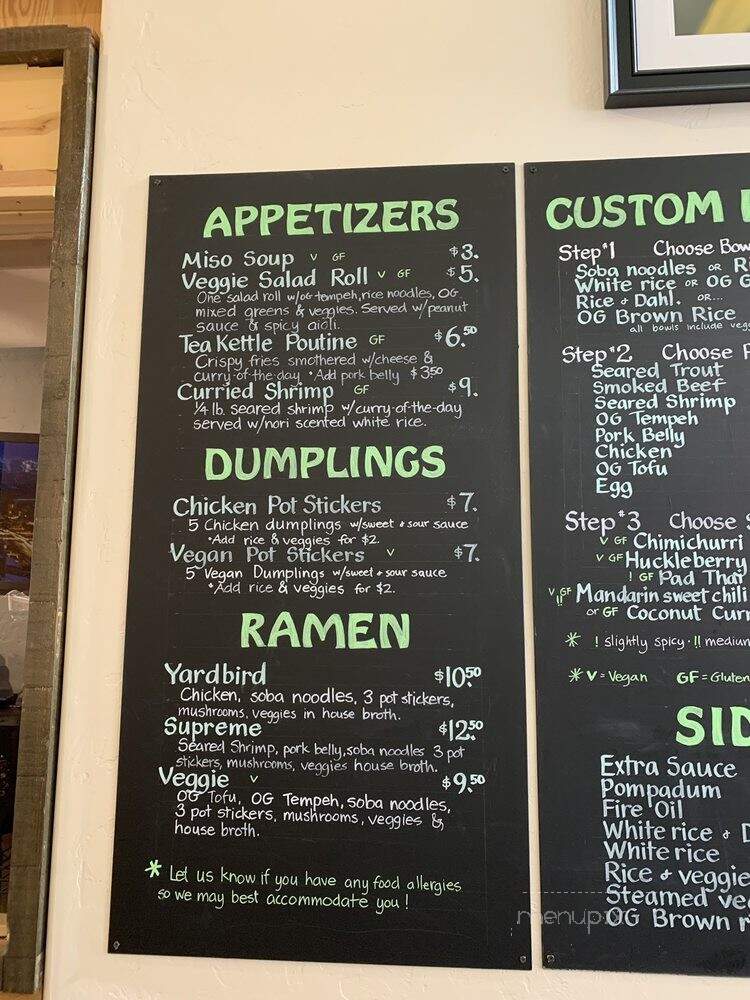 APPETIZERS
Miso Soup V GF $3.
Veggie Salad Roll V GF $5.
One salad roll w/OG tempeh, rice noodles, OG
mixed greens & veggies. Served w/peanut
sauce & spicy aioli.
Tea Kettle Poutine GF $6.50
Crispy fries smothered w/cheese &
curry-of-the-day *Add pork belly $3.50
Curried Shrimp GF $9.
1/4 lb. seared shrimp w/curry-of-the-day
served w/nori scented white rice.
DUMPLINGS
Chicken Pot Stickers $7.
5 Chicken dumplings w/sweet & sour sauce
*Add rice & veggies for $2.
Vegan Pot Stickers V $7.
5 Vegan Dumplings w/sweet & sour sauce
*Add rice & veggies for $2.
RAMEN
Yardbird $10.50
Chicken, soba noodles, 3 pot stickers,
mushrooms, veggies in house broth.
Supreme $12.50
Seared Shrimp, pork belly, soba noodles 3 pot
stickers, mushrooms, veggies house broth.
Veggie V $9.50
OG Tofu, OG Tempeh, soba noodles,
3 pot stickers, mushrooms, veggies &
house broth.
* Let us know if you have any food allergies
so we may best accommodate you!
CUSTOM
Step #1 Choose
Soba noodles OR
White rice OR OG
Rice & Dahl. OR...
OG Brown Rice
all bowls include
Step #2 Choose
Seared Trout
Smoked Beef
Seared Shrimp
OG Tempeh
Pork Belly
Chicken
OG Tofu
Egg
Step #3 Choose
V GF Chimichurri
V GF Huckleberry
! GF Pad Thai
V GF !! Mandarin sweet chili
or GF Coconut
* ! slightly spicy · !!
* V = Vegan GF = Gluten
Extra Sauce
Pompadum
Fire Oil
White rice &
White rice
Rice & veggie
Steamed
OG Brown
menupix